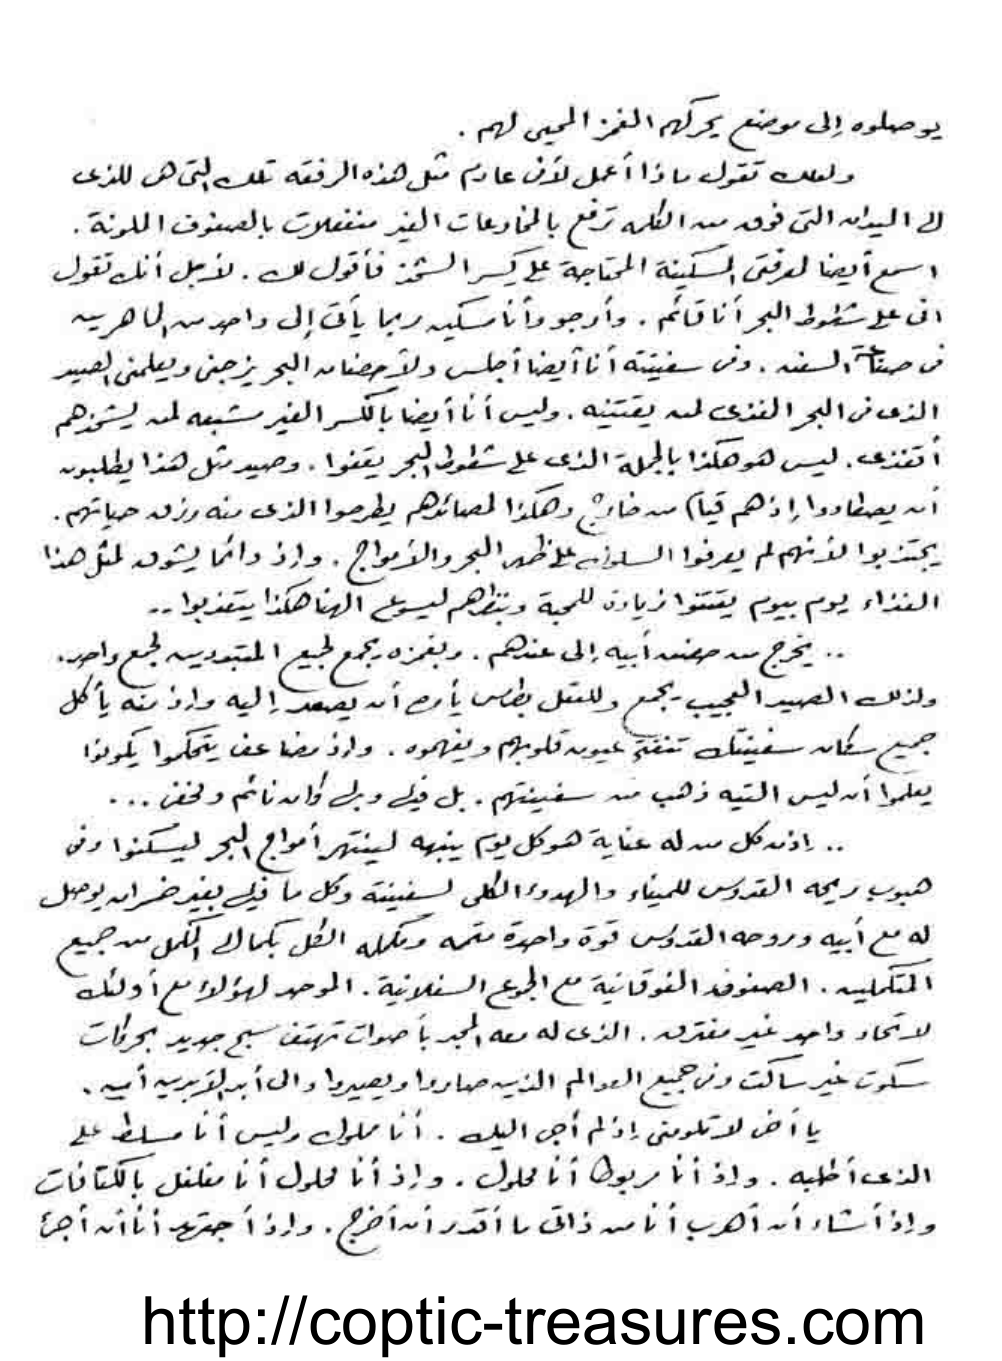 يوصلوه إلى موضع يحركهم الغمز المحيي لهم .
ولعلك تقول ماذا أعمل لأنى عادم مثل هذه الرفقه تلك التى هى للذى
لى الميدان التى فوق من الكل ترفع بالمخادعات الغير منفعلات بالصفوف الملونة .
اسمع أيضا لمعرفتى المسكينة المحتاجة على كسر الشحذ فأقول لك . لأجل أنك تقول
انى على شطوط البحر أنا قائم . وأرجو وأنا مسكين ربما يأتى إلى واحد من الماهرين
فى صناعة السفن . وفى سفينته أنا أيضا أجلس ولأحضان البحر يزجنى ويعلمنى الصيد
الذى فى البحر المغذى لمن يقتنيه . وليس أنا أيضا بالكسر الغير مشبعه لمن يشحذهم
أتغذى . ليس هو هكذا بالجملة الذى على شطوط البحر يقفوا . وصيد مثل هذا يطلبون
أن يصطادوا إذ هم قياما من خارج وهكذا لمصائدهم يطرحوا الذى منه رزق حياتهم .
يجتذبوا لأنهم لم يعرفوا السلوك على ظهر البحر والأمواج . وإذ دائما يشوق لمثل هذا
الغذاء يوم بيوم يقتنوا زيادة للمحبة وبنظرهم ليسوع الهنا هكذا يتعذبوا ..
.. يخرج من حضن أبيه إلى عندهم . وبغمزه يجمع لجميع المتبددين لجمع واحد .
ولذلك الصيد العجيب يجمع وللعقل بطرس يأمره أن يصعد إليه وإذ منه يأكل
جميع سكان سفينتك تنفتح عيون قلوبهم ويفهموه . وإذ مضاعف يتحكموا يكونوا
يعلموا أن ليس التيه ذهب من سفينتهم . بل فيك وبك كان نائم ومخفى ...
.. إذن كل من له عناية هو كل يوم ينبهه لينتهر أمواج البحر ليسكنوا وفى
هبوب ريحه القدوس للميناء والهدوء الكلى لسفينته وكل ما فيك بغير خسران يوصل
له مع أبيه وروحه القدوس قوة واحدة متممه ومكمله الكل بكمال الكل من جميع
المتكملين . الصفوف الفوقانية مع الجموع السفلانية . الموحد لهؤلاء مع أولئك
لاتحاد واحد غير مفترق . الذى له معه المجد بأصوات تهتف سبح جديد بحركات
سكوت غير ساكت وفى جميع العوالم الذين صاروا ويصيروا والى أبد الآبدين أمين .
يا أخى لا تلومنى إذ لم أجى اليك . أنا مملوك وليس أنا مسلط على
الذى أطلبه . وإذ أنا مربوط أنا محلول . وإذ أنا محلول أنا مغلغل بالكتافات
وإذ أشاء أن أهرب أنا من ذاتى ما أقدر أن أخرج . وإذ أجتهد أنا أن أجئ
http://coptic-treasures.com